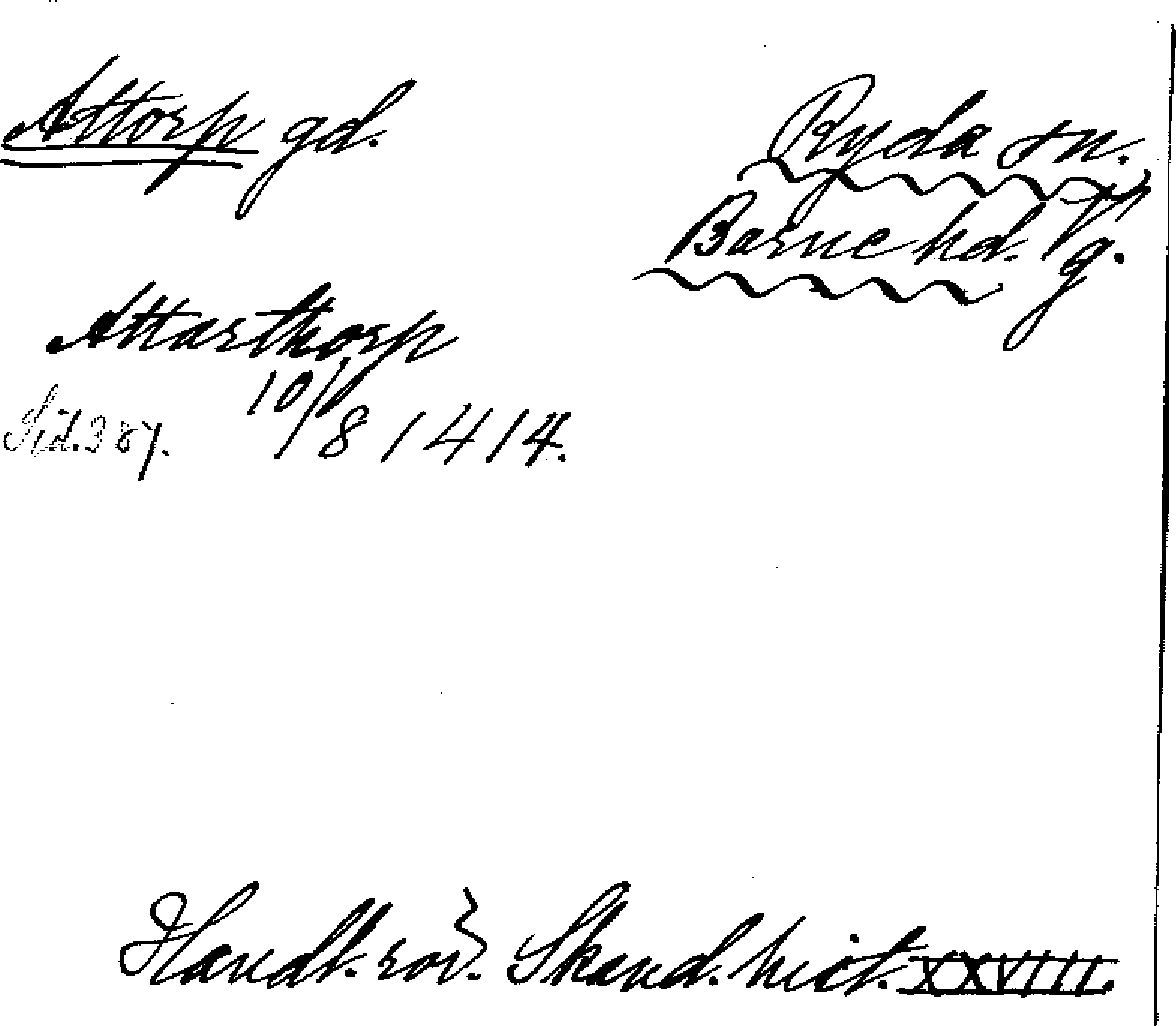 Attorp gd.
Ryda sn.
Barne hd. Vg.
Attarthorp
Sid. 387. 10/8 1414.
Handl. rör. Skand. hist. XXVIII.